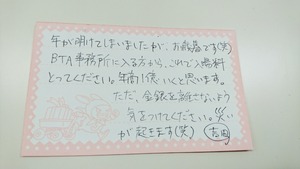 年が明けてしまいましたが、お歳暮です(笑)
BTA事務所に入る方から、これで入場料
とってください。年商1億いくと思います。
ただ、金銀を離さないよう
気をつけてください。災い
が起きます(笑)
吉岡